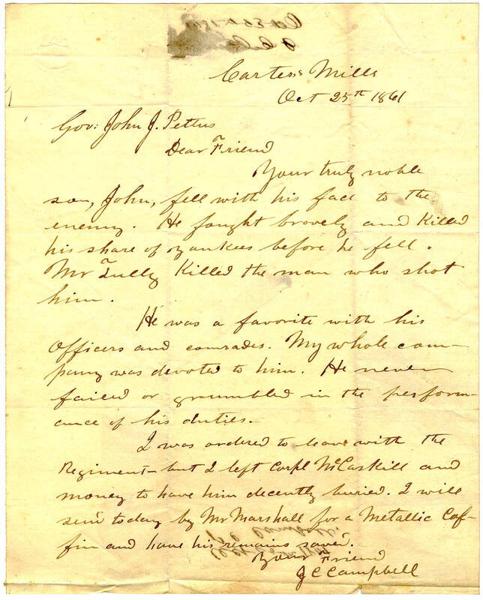 Carters Mills
Oct 25th 1861
Gov: John J. Pettus
Dear Friend
Your truly noble
son, John, fell with his face to the
enemy. He fought bravely and Killed
his share of Yankees before he fell.
Mr Tully Killed the man who shot
him.
He was a favorite with his
Officers and comrades. My whole com-
pany was devoted to him. He never
failed or grumbled in the perform-
ance of his duties.
I was ordered to leave with the
Regiment - but I left Corpl McCaskill and
money to have him decently buried. I will
send today by Mr Marshall for a Metallic Cof-
fin and have his remains saved.
Your Friend
J C Campbell